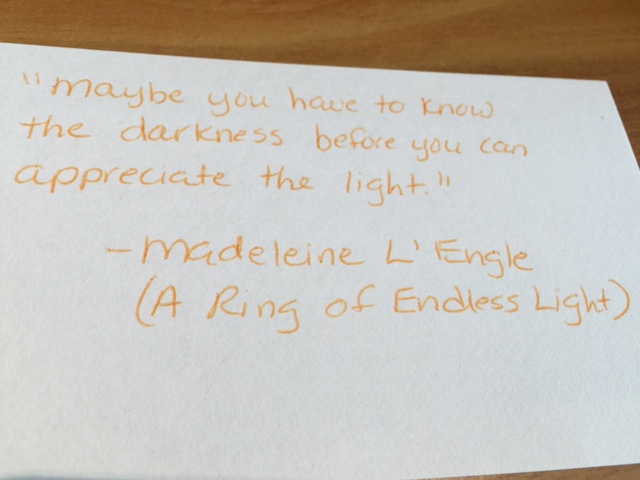 "maybe you have to know
the darkness before you can
appreciate the light."
- Madeleine L'Engle
(A Ring of Endless Light)